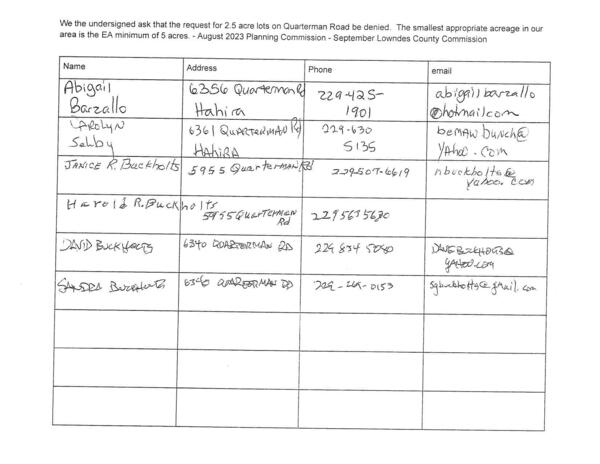 We the undersigned ask that the request for 2.5 acre lots on Quarterman Road be denied. The smallest appropriate acreage in our
area is the EA minimum of 5 acres. - August 2023 Planning Commission - September Lowndes County Commission
Name Address Phone email
Abigail 6356 Quarterman Rd 229-425- abigailbarzallo
Barzallo Hahira 1901 @hotmail.com
Carolyn 6361 QUARTERMAN Rd 229-630 bemawbunch@
Selby HAHIRA 5135 YAhoo.com
JANICE R. Buckholts 5955 Quarterman Rd 229 507-6619 nbuckholts@
yahoo.com
Harold R. Buckholts
5955 QUARTERMAN 229 563 5630
Rd
DAVID BUCKHOLTS 6340 QUARTERMAN RD 229 834 5080 DAVEBUCKHOLTS@
YAHOO.COM
SANDRA BUCKHOLTS 6340 QUARTERMAN RD 229-269-0153 sgbuckholts@gmail.com